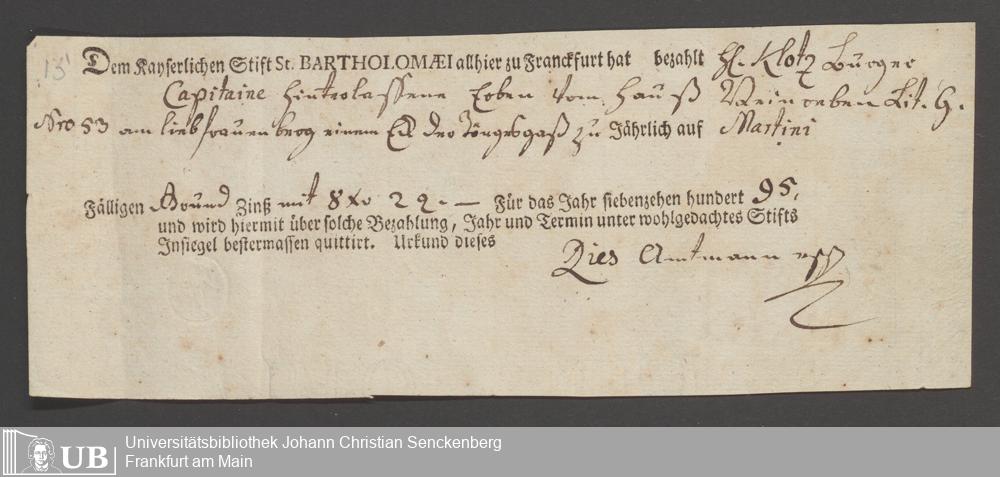 131
Dem Kayserlichen Stift St. BARTHOLOMÆI allhier zu Franckfurt hat bezahlt H. Klotz Burger
Capitaine hinterlassene Erben vom Hauß neben Lit. G.
Nro 53 am liebfrauenberg einem Eck der Töngesgaß zu Jährlich auf Martini
Fälligen Grund Zinß mit 8 xr 2 — Für das Jahr siebenzehen hundert 95.
und wird hiermit über solche Bezahlung, Jahr und Termin unter wohlgedachtes Stifts
Insiegel bestermassen quittirt. Urkund dieses
Dies Amtmann
UB
Universitätsbibliothek Johann Christian Senckenberg
Frankfurt am Main